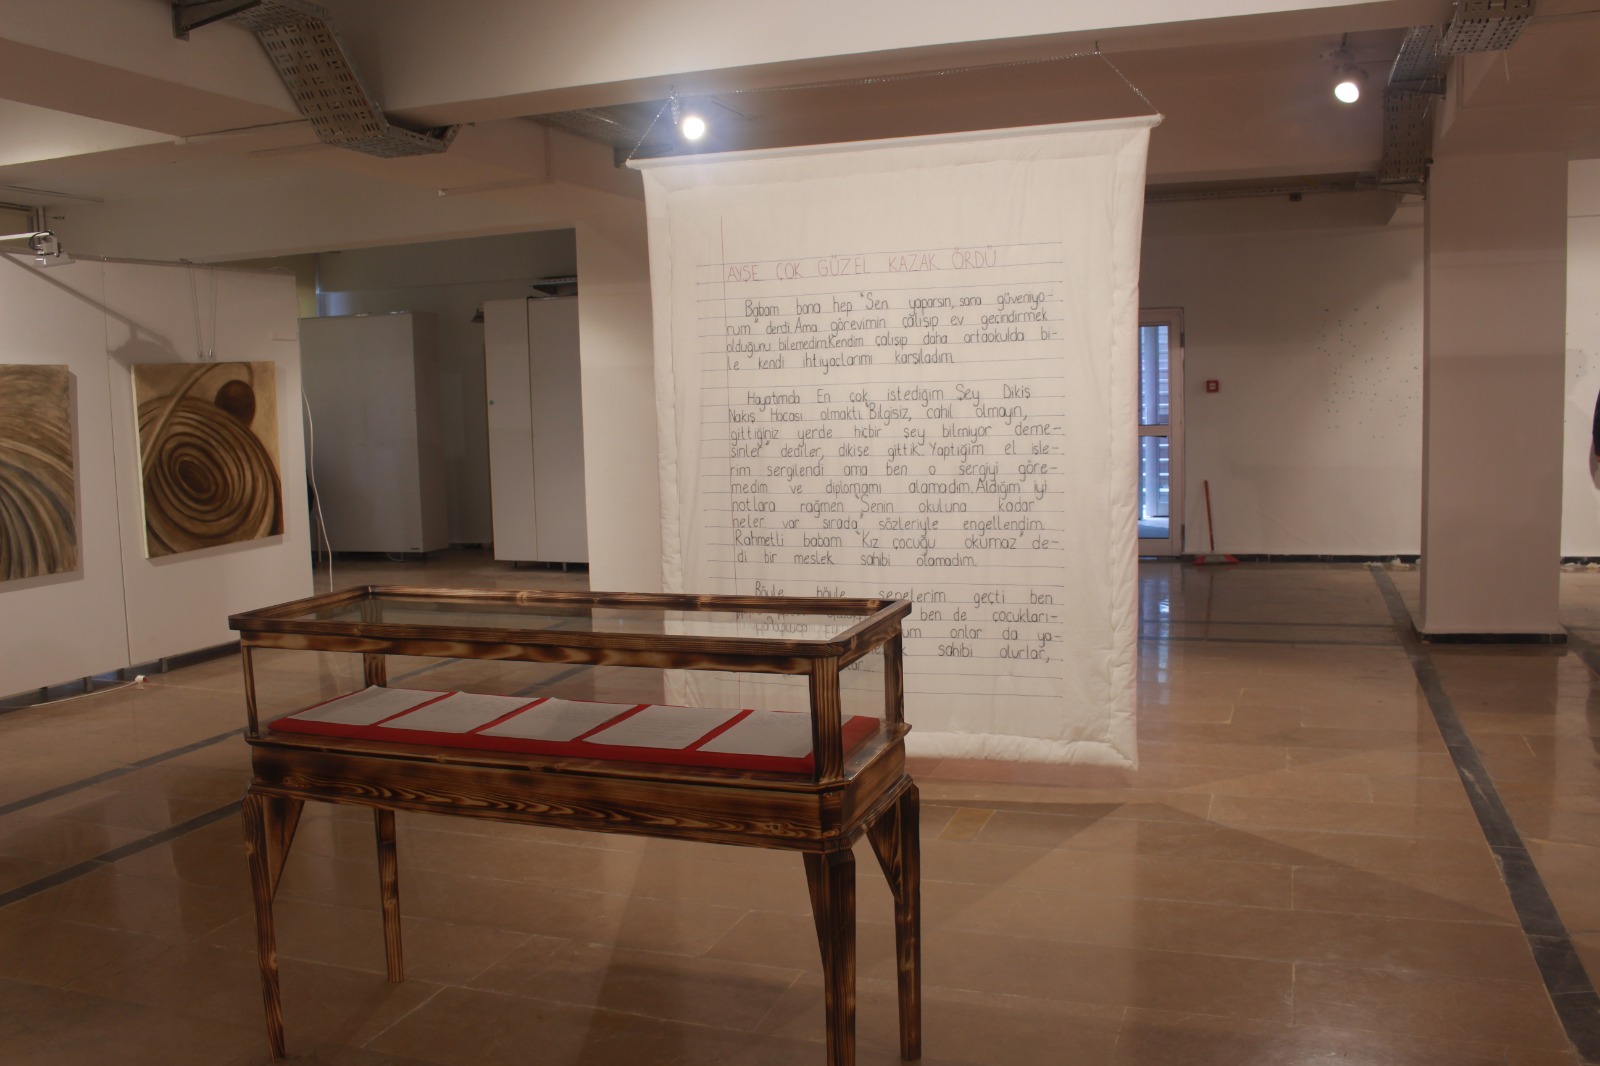 AYŞE ÇOK GÜZEL KAZAK ÖRDÜ
Babam bana hep "Sen yaparsın, sana güveniyo-
rum" derdi. Ama görevimin çalışıp ev geçindirmek
olduğunu bilemedim. Kendim çalışıp daha ortaokulda bi-
le kendi ihtiyaçlarımı karşıladım.
Hayatımda En çok istediğim Şey Dikiş
Nakış Hocası olmaktı. "Bilgisiz, cahil olmayın,
gittiğiniz yerde hiçbir şey bilmiyor deme-
sinler" dediler, dikişe gittik. Yaptığım el işle-
rim sergilendi ama ben o sergiyi göre-
medim ve diplomamı alamadım. Aldığım iyi
notlara rağmen "Senin okuluna kadar
neler var sırada" sözleriyle engellendim.
Rahmetli babam "Kız çocuğu okumaz" de-
di bir meslek sahibi olamadım.
Böyle böyle senelerim geçti ben
ben de çocukları-
onlar da ya-
sahibi olurlar,